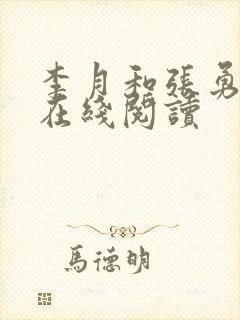 李月和张勇
在綫閱讀
馬德明